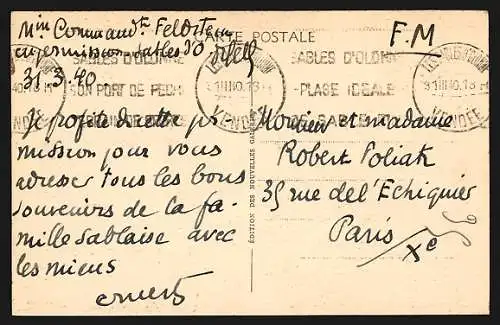 Min Commandt Feldstein
en permission Sables d'O
CARTE POSTALE
F.M
31-3-40
SABLES D'OLONNE
SON PORT DE PECHE
SABLES D'OLONNE
PLAGE IDEALE
VENDÉE
Je profite de cette per-
mission pour vous
adresser tous les bons
souvenirs de la fa-
mille sablaise avec
les miens
EDITION DES NOUVELLES GAL
Monsieur et madame
Robert Poliak
35 rue de l'Echiquier
Paris
Xe